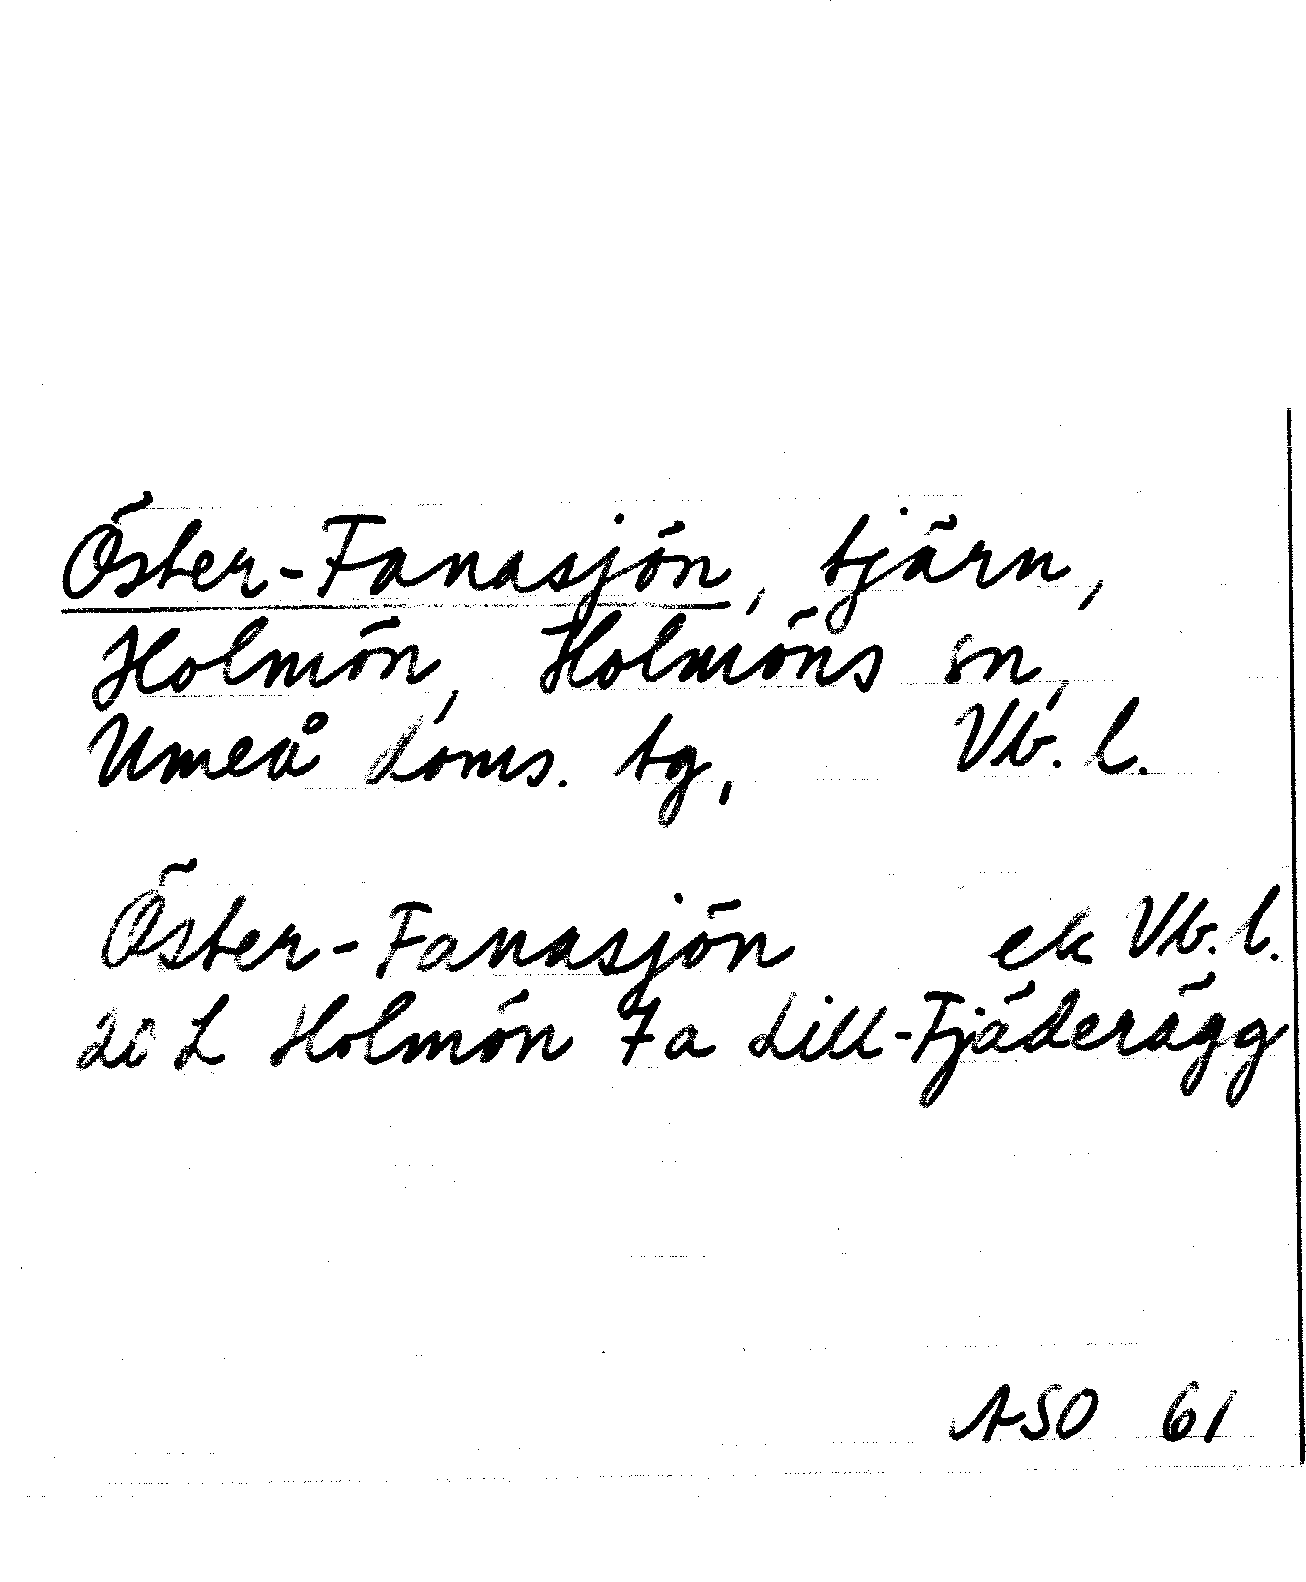 Öster-Fanasjön, tjärn,
Holmön, Holmöns sn,
Umeå doms. tg, Vb. l.
Öster-Fanasjön ek Vb. l.
20 L Holmön 7a Lill-Fjäderägg
ASO 61